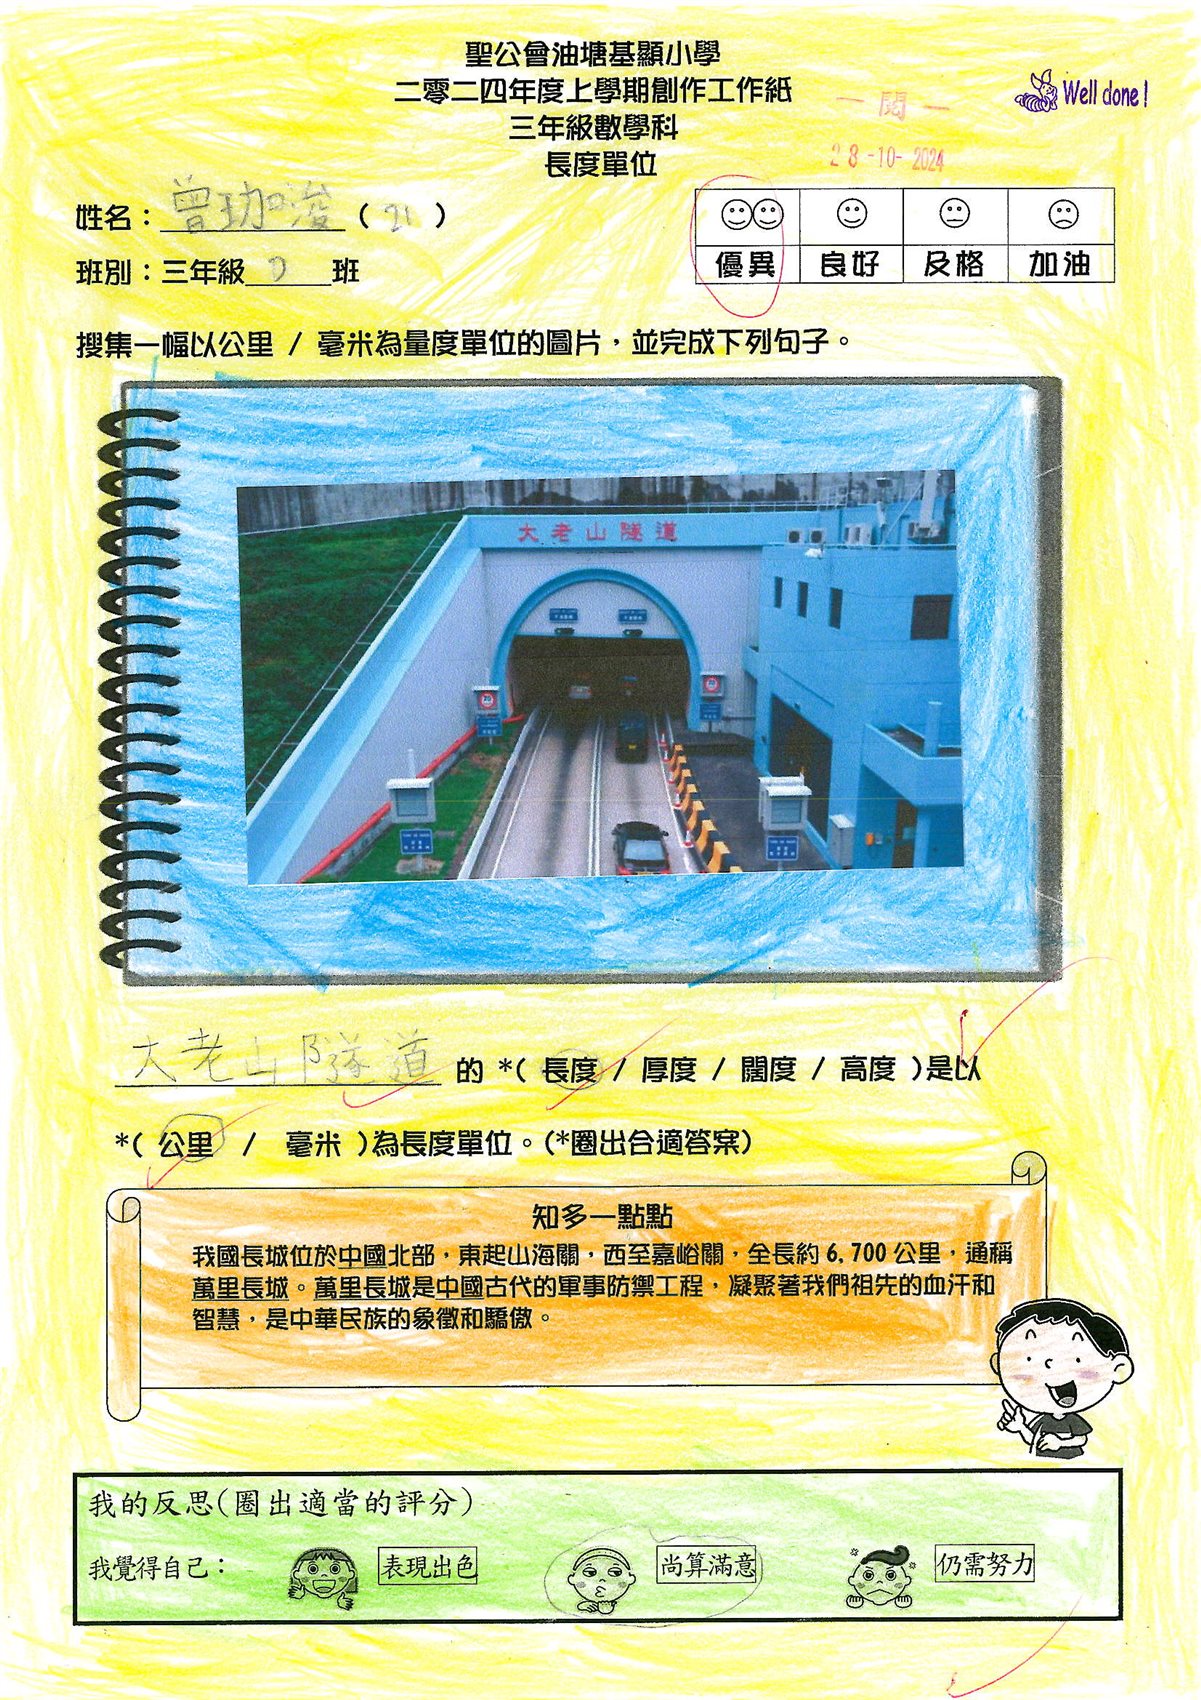 聖公會油塘基顯小學
二零二四年度上學期創作工作紙
三年級數學科
長度單位
一閱一
28-10-2024
Well done!
姓名：曾珈浚（21）
班別：三年級D班
優異 良好 及格 加油
搜集一幅以公里 / 毫米為量度單位的圖片，並完成下列句子。
大老山隧道
大老山隧道 的 *( 長度 / 厚度 / 闊度 / 高度 )是以
*( 公里 / 毫米 )為長度單位。(*圈出合適答案)
知多一點點
我國長城位於中國北部，東起山海關，西至嘉峪關，全長約 6,700 公里，通稱
萬里長城。萬里長城是中國古代的軍事防禦工程，凝聚著我們祖先的血汗和
智慧，是中華民族的象徵和驕傲。
我的反思(圈出適當的評分)
我覺得自己： 表現出色 尚算滿意 仍需努力